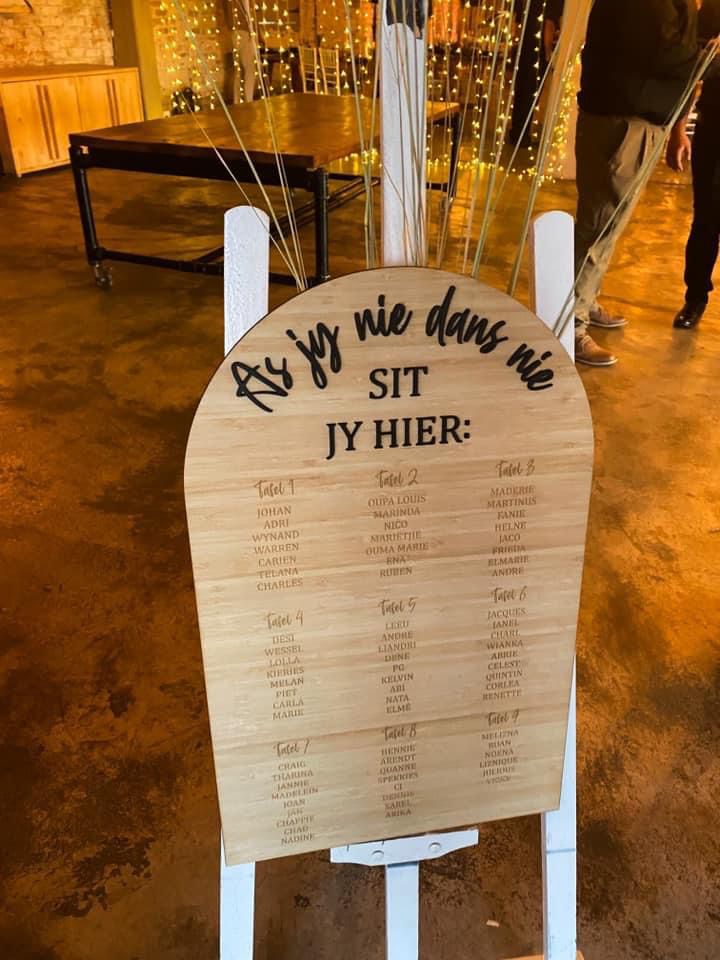 As jy nie dans nie
SIT
JY HIER:
Tafel 1
JOHAN
ADRI
WYNAND
WARREN
CARIEN
TELANA
CHARLES
Tafel 2
OUPA LOUIS
MARINDA
NICO
MARIETHE
OUMA MARIE
ENA
RUBEN
Tafel 3
MADERIE
MARTINUS
FANIE
HELNE
JACO
FRIEDA
ELMARIE
ANDRE
Tafel 4
DESI
WESSEL
LOLLA
KIERIES
MELAN
PIET
CARLA
MARIE
Tafel 5
LEEU
ANDRE
LIANDRI
DENE
PG
KELVIN
ABI
NATA
ELMÉ
Tafel 6
JACQUES
JANEL
CHARL
WIANKA
ABRIE
CELEST
QUINTIN
CORLEA
RENETTE
Tafel 7
CRAIG
THARINA
JANNIE
MADELEIN
JOAN
JAN
CHAPPIE
CHAD
NADINE
Tafel 8
HENNIE
ARENDT
QUANNE
SPEKKIES
CJ
DENNIS
SAREL
ARIKA
Tafel 9
MELIZNA
RUAN
NOENA
LIZNIQUE
JULIOUS
VICKY